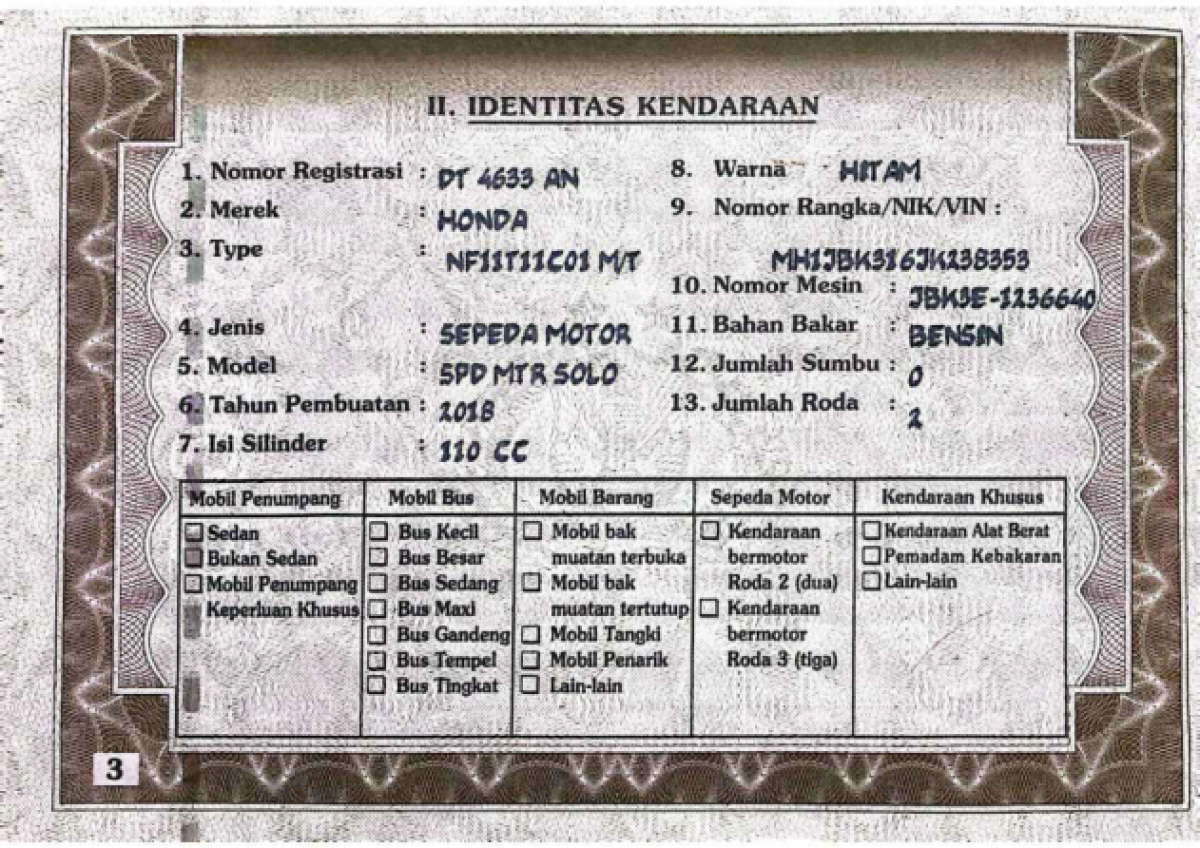 II. IDENTITAS KENDARAAN
1. Nomor Registrasi : DT 4633 AN
2. Merek : HONDA
3. Type : NF11T11C01 M/T
4. Jenis : SEPEDA MOTOR
5. Model : SPD MTR SOLO
6. Tahun Pembuatan : 2018
7. Isi Silinder : 110 CC
8. Warna : HITAM
9. Nomor Rangka/NIK/VIN :
MH1JBK316JK238353
10. Nomor Mesin : JBK3E-1236640
11. Bahan Bakar : BENSIN
12. Jumlah Sumbu : 0
13. Jumlah Roda : 2
Mobil Penumpang
Sedan
Bukan Sedan
Mobil Penumpang
Keperluan Khusus
Mobil Bus
Bus Kecil
Bus Besar
Bus Sedang
Bus Maxi
Bus Gandeng
Bus Tempel
Bus Tingkat
Mobil Barang
Mobil bak
muatan terbuka
Mobil bak
muatan tertutup
Mobil Tangki
Mobil Penarik
Lain-lain
Sepeda Motor
Kendaraan
bermotor
Roda 2 (dua)
Kendaraan
bermotor
Roda 3 (tiga)
Kendaraan Khusus
Kendaraan Alat Berat
Pemadam Kebakaran
Lain-lain
3